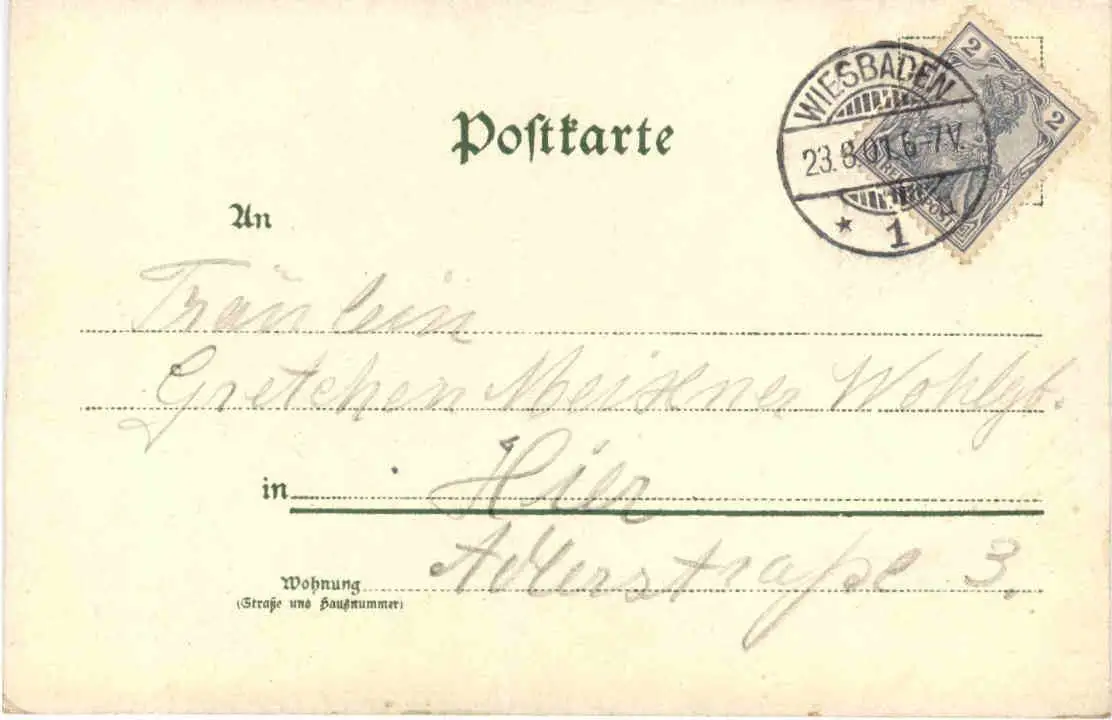 Postkarte
WIESBADEN
23.8.01.6-7V.
* 1
2
2
REICHSPOST
An
Fräulein
Gretchen Meixner Wohlgb.
in Hier
Wohnung Adlerstraße 3.
(Straße und Hausnummer)